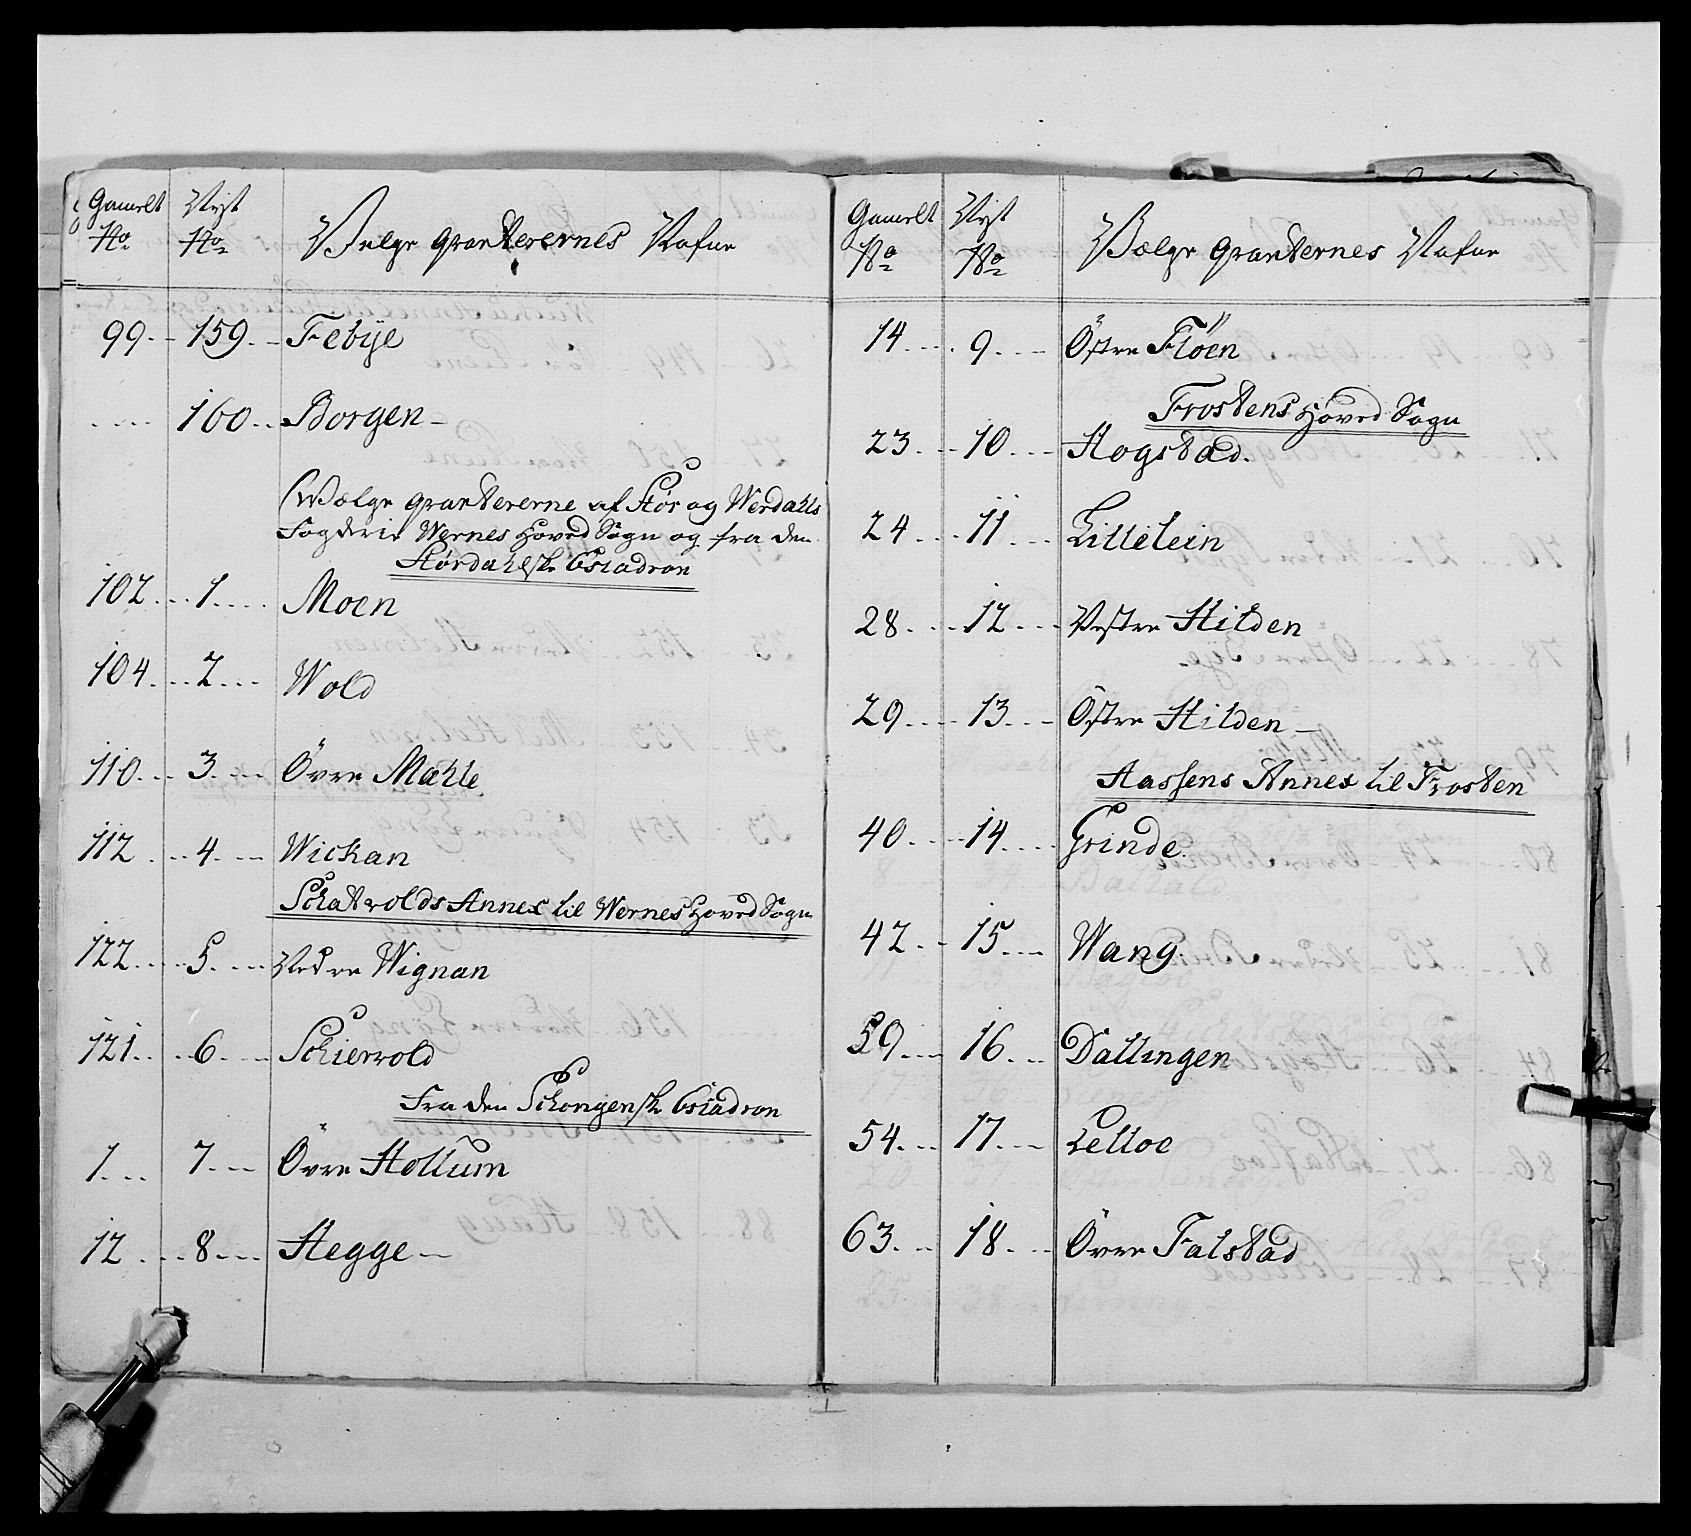 Gamelt No
Nyt No
Velge qvarterernes Nafne
99 159 Febÿe
160 Borgen
Wælge qvartererne af Stör og Werdahls
Fogderie Wernes Hoved Sogn og fra den
Størdahlske Escadron
102 1 Moen
104 2 Wold
110 3 Övre Mæhle
112 4 Wickan
Schatvolds Annex til Wernes Hoved Sogn
122 5 Nedre Wignan
121 6 Schiervold
Fra den Schongenske Escadron
1 7 Övre Hollum
12 8 Hegge
Gamelt No
Nyt No
Vælge qvarternes Nafne
14 9 Östre Flöen
Frostens Hoved Sogn
23 10 Hogstad
24 11 Lillelein
28 12 Vestre Hilden
29 13 Östre Hilden
Aassens Annex til Frosten
40 14 Grinde
42 15 Wang
59 16 Dallingen
54 17 Lelloe
63 18 Övre Falstad